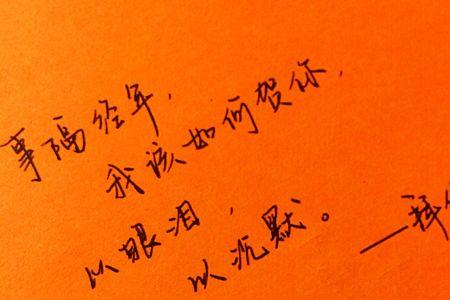 事隔经年，
我该如何贺你，
以眼泪，
以沉默。
——拜